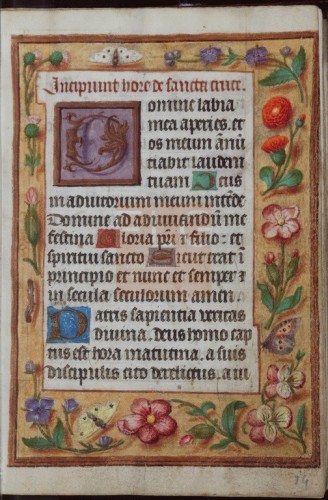 Incipiunt hore de sancta cruce.
Domine labia
mea aperies. et
os meum annū
tiabit laudem
tuam. Deus
in adiutorium meum intēde
Domine ad adiuuandū me
festina Gloria pr̄i et filio: et
spiritui sancto Sicut erat ī
principio et nunc et semper et
in secula seculorum amen.
Patris sapientia veritas
diuina. deus homo cap
tus est hora matutina. a suis
discipulis cito derelictus. a iu